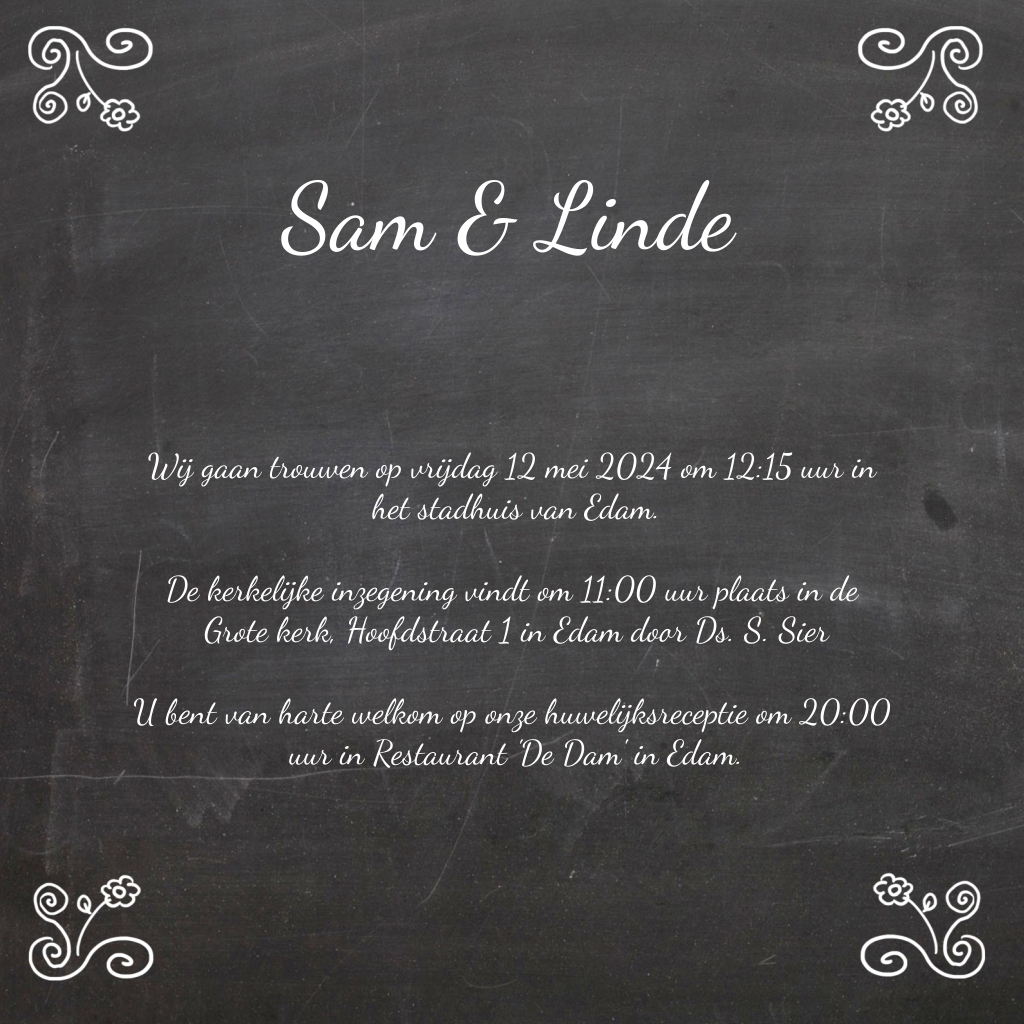 Sam & Linde
Wij gaan trouwen op vrijdag 12 mei 2024 om 12:15 uur in
het stadhuis van Edam.
De kerkelijke inzegening vindt om 11:00 uur plaats in de
Grote kerk, Hoofdstraat 1 in Edam door Ds. S. Sier
U bent van harte welkom op onze huwelijksreceptie om 20:00
uur in Restaurant 'De Dam' in Edam.